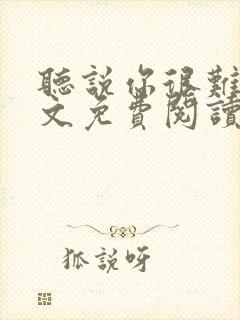 聽說你很難
文免費閱讀
狐說呀